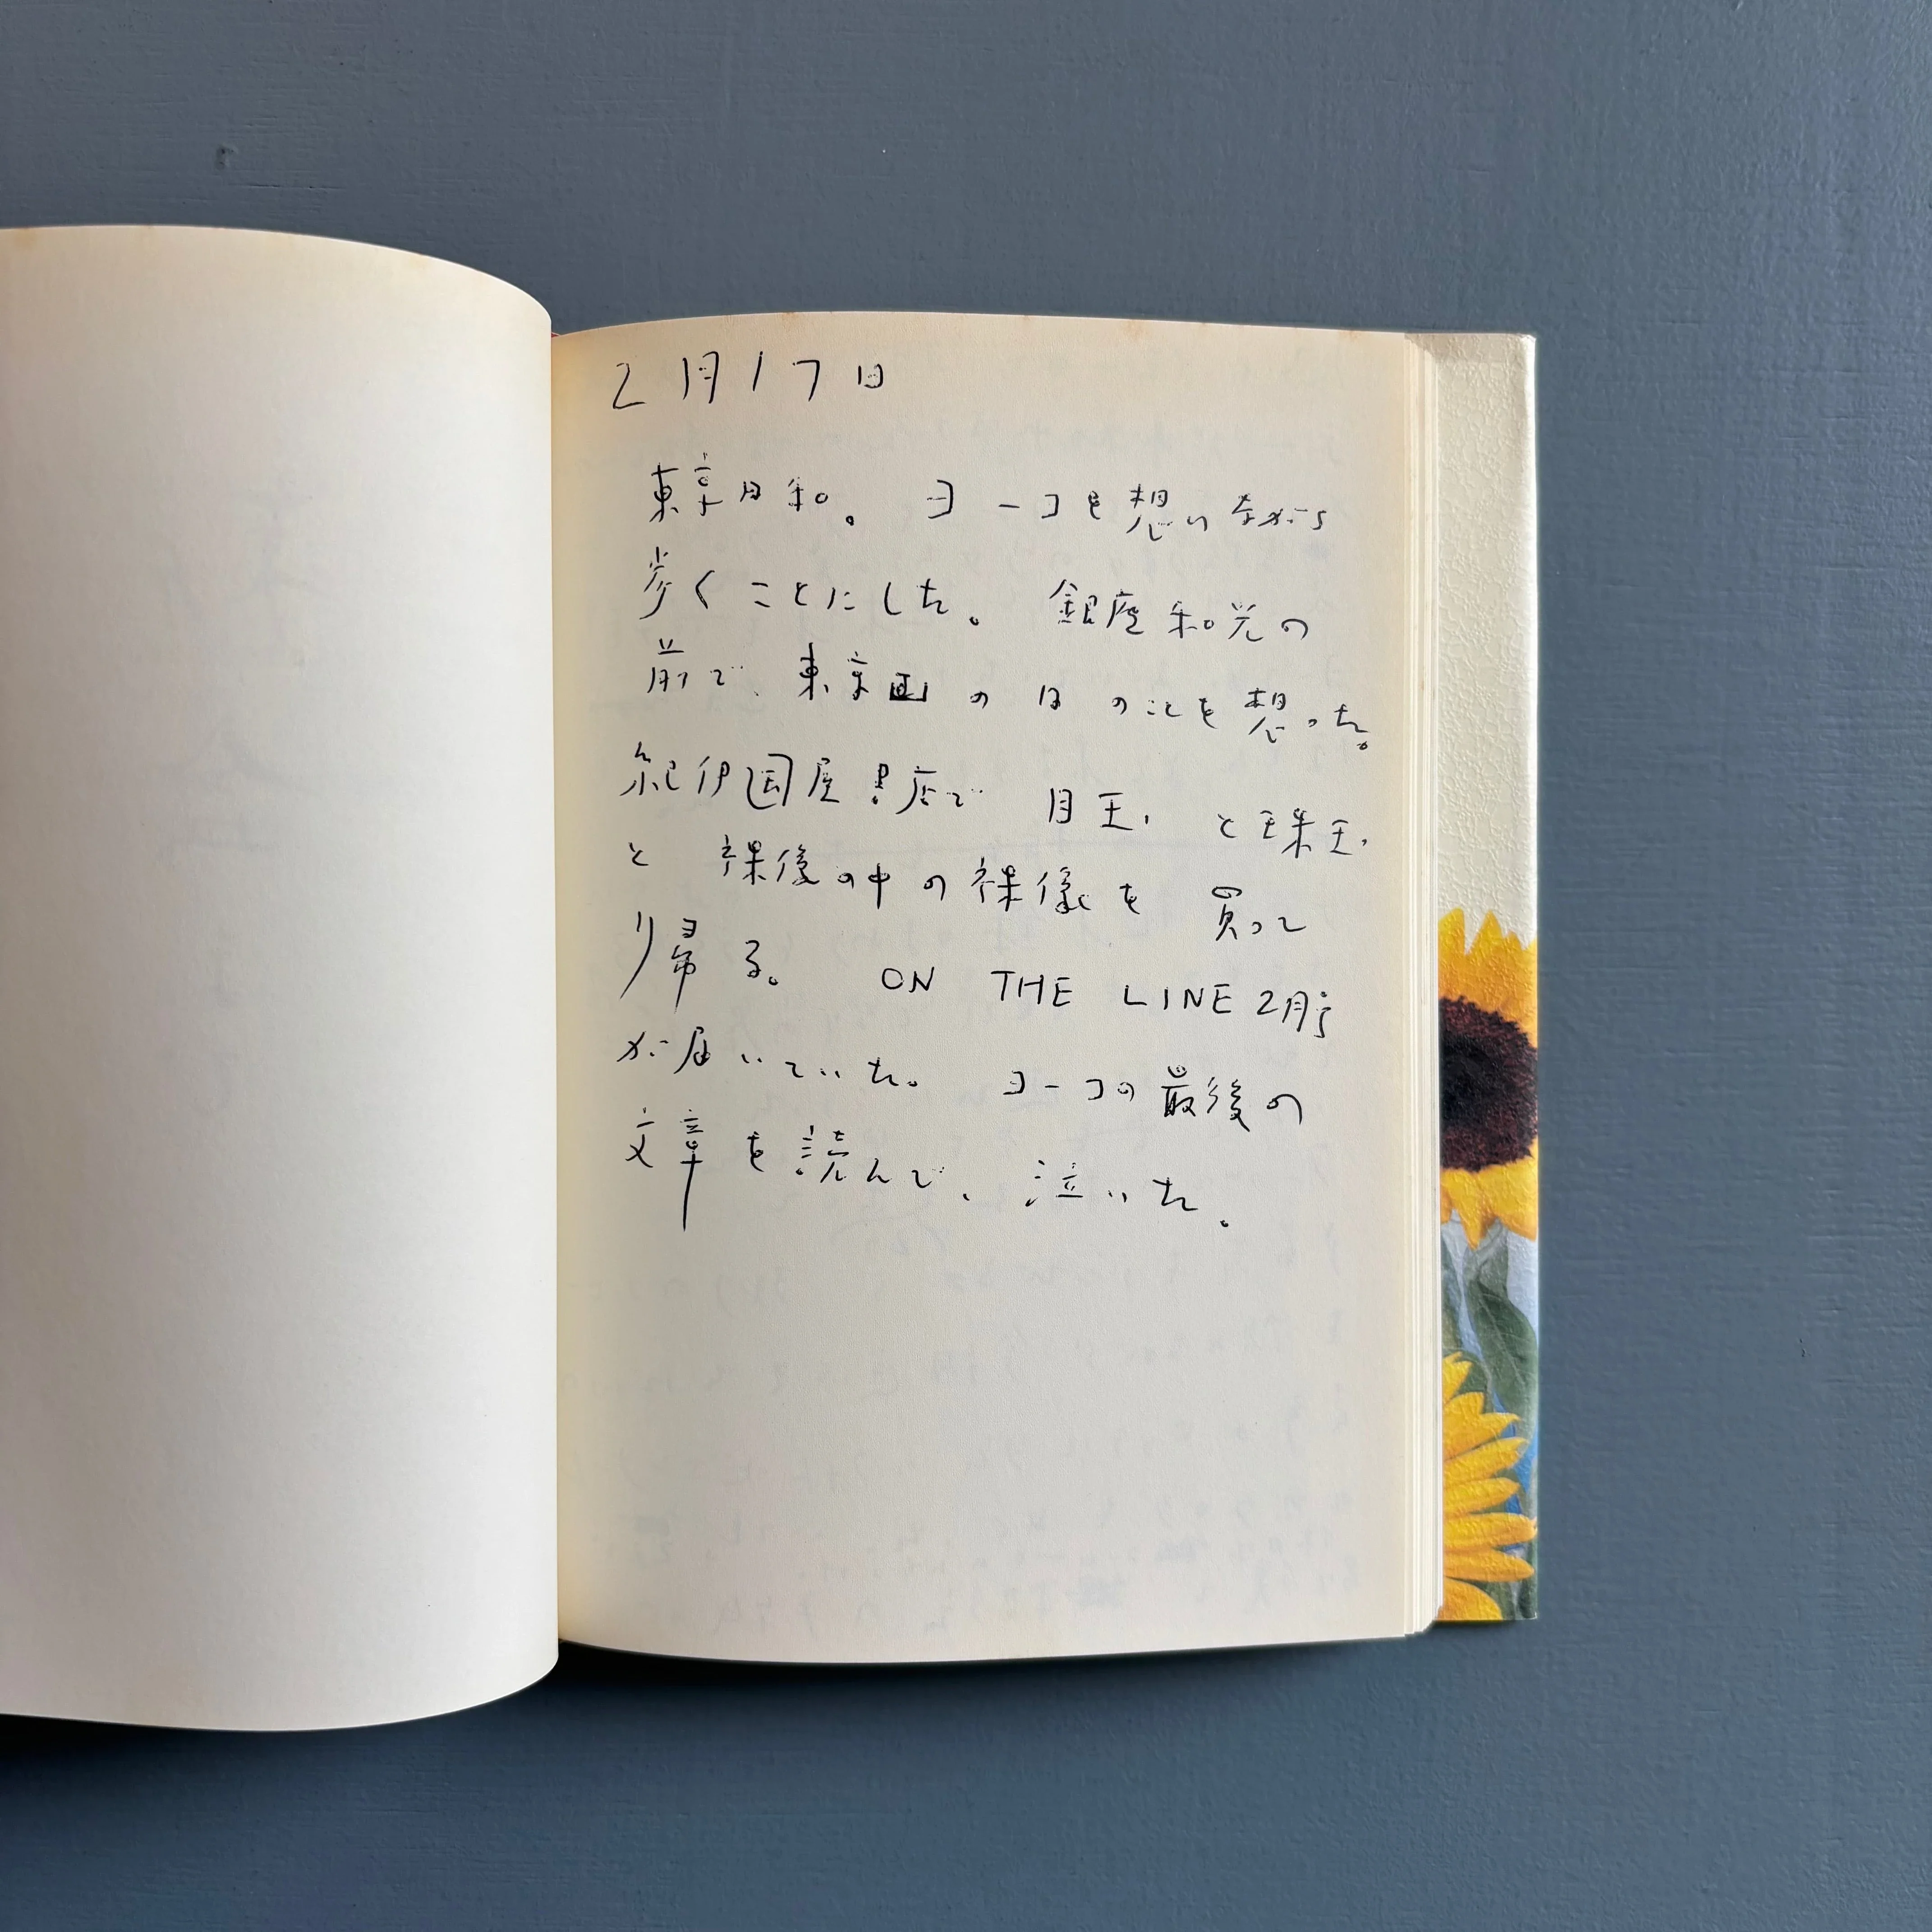 2月17日
東京日和。 ヨーコを想いながら
歩くことにした。 銀座和光の
前で、東京画の日のことを想った。
紀伊国屋書店で 眼玉、と珠玉、
と 裸後の中の裸像を 買って
帰る。 ON THE LINE 2月号
が届いていた。 ヨーコの最後の
文章を読んで、泣いた。